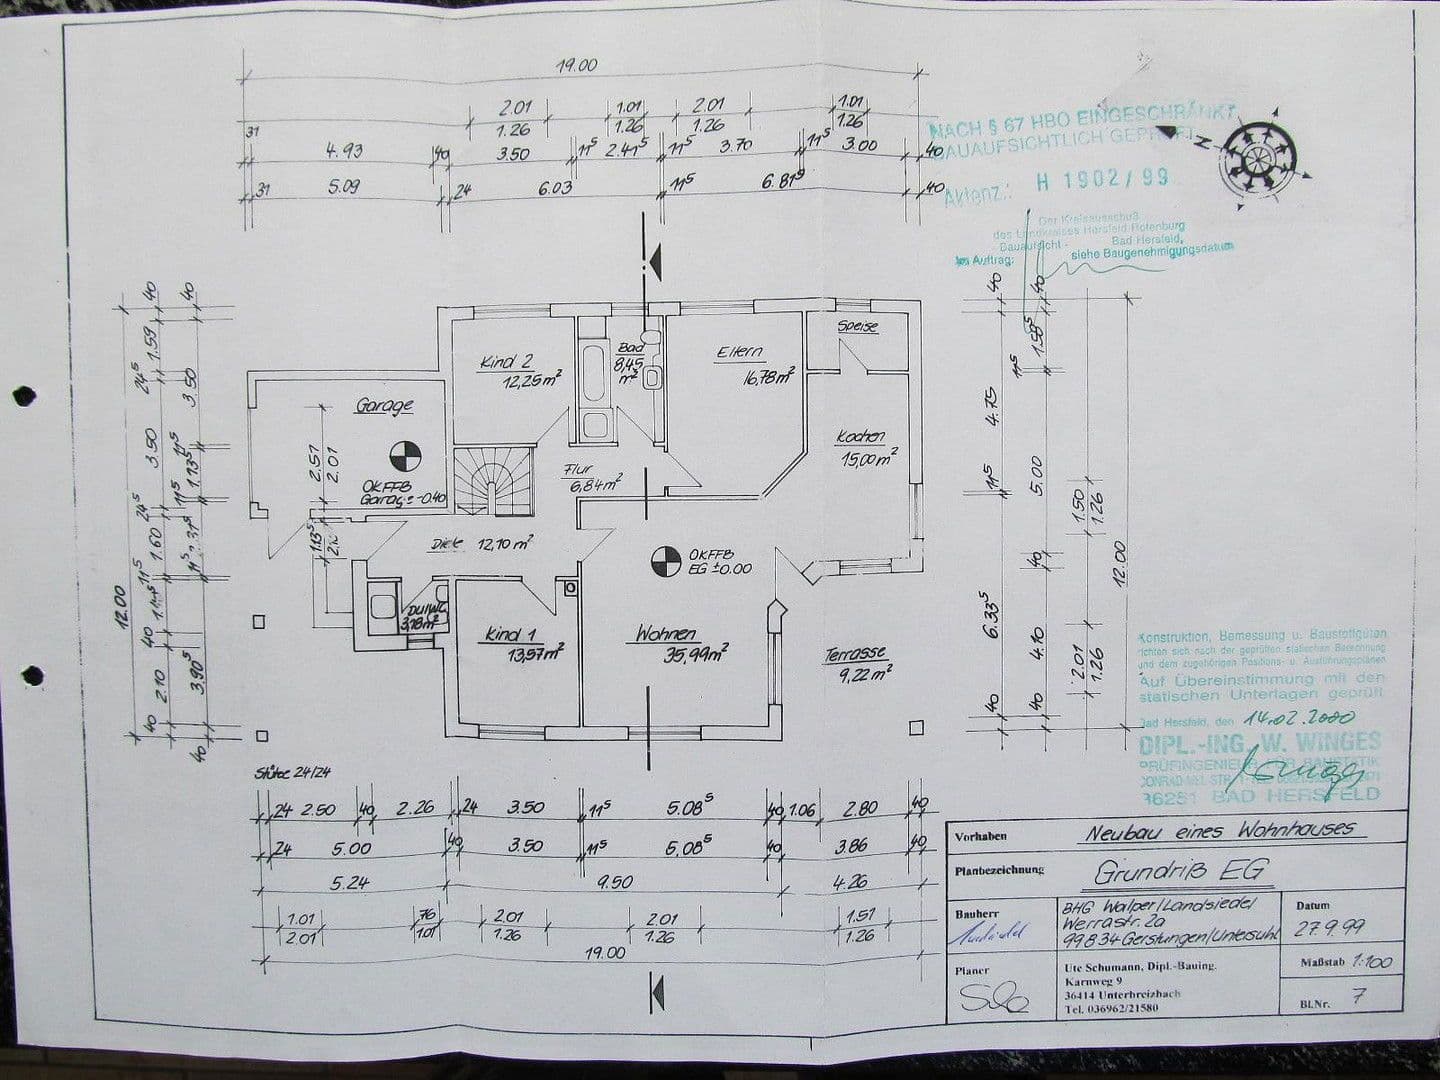 19.00
2.01 1.01 2.01 1.01
1.26 1.26 1.26 1.26
31 4.93 40 3.50 11⁵ 2.41⁵ 11⁵ 3.70 11⁵ 3.00 40
31 5.09 24 6.03 11⁵ 6.81⁵ 40
NACH § 67 HBO EINGESCHRÄNKT
BAUAUFSICHTLICH GEPRÜFT
Aktenz.: H 1902/99
Der Kreisausschuß
des Landkreises Hersfeld Rotenburg
Bauaufsicht - Bad Hersfeld,
Im Auftrag: siehe Baugenehmigungsdatum
N
Kind 2
12,25m²
Bad
8,45
m²
Eltern
16,78m²
Speise
Garage
OKFFB
Garage -0.40
2.51
2.01
Flur
6,84m²
Kochen
15,00m²
Diele 12,10m²
OKFFB
EG ±0.00
DU/WC
3,18m²
Kind 1
13,57m²
Wohnen
35,99m²
Terrasse
9,22m²
Stütze 24/24
12.00
40 1.59 24⁵ 3.50 24⁵ 1.60 11⁵ 40 2.10 40
40 3.50 11⁵ 1.13⁵ 11⁵ 3.90⁵ 40
1.13⁵
40 4.75 11⁵ 6.33⁵ 40
40 1.58⁵ 11⁵ 5.00 40 4.10 40
1.50
1.26
2.01
1.26
12.00
24 2.50 40 2.26 24 3.50 11⁵ 5.08⁵ 40 1.06 2.80 40
24 5.00 40 3.50 11⁵ 5.08⁵ 40 3.86 40
5.24 9.50 4.26
1.01 76 2.01 2.01 1.51
2.01 1.01 1.26 1.26 1.26
19.00
Konstruktion, Bemessung u. Baustoffgüten
richten sich nach der geprüften statischen Berechnung
und dem zugehörigen Positions- u. Ausführungsplänen
Auf Übereinstimmung mit den
statischen Unterlagen geprüft
Bad Hersfeld, den 14.02.2000
DIPL.-ING. W. WINGES
PRÜFINGENIEUR FÜR BAUSTATIK
36251 BAD HERSFELD
Vorhaben Neubau eines Wohnhauses
Planbezeichnung Grundriß EG
Bauherr BHG Walper/Landsiedel
Werrastr. 2a
99834 Gerstungen/Untersuhl
Datum
27.9.99
Planer Ute Schumann, Dipl.-Bauing.
Karnweg 9
36414 Unterbreizbach
Tel. 036962/21580
Maßstab 1:100
Bl.Nr. 7